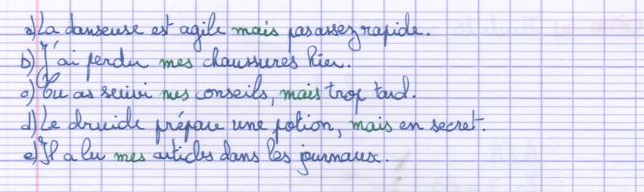 a) La danseuse est agile mais pas assez rapide.
b) J'ai perdu mes chaussures hier.
c) Tu as suivi mes conseils, mais trop tard.
d) Le druide prépare une potion, mais en secret.
e) Il a lu mes articles dans les journaux.